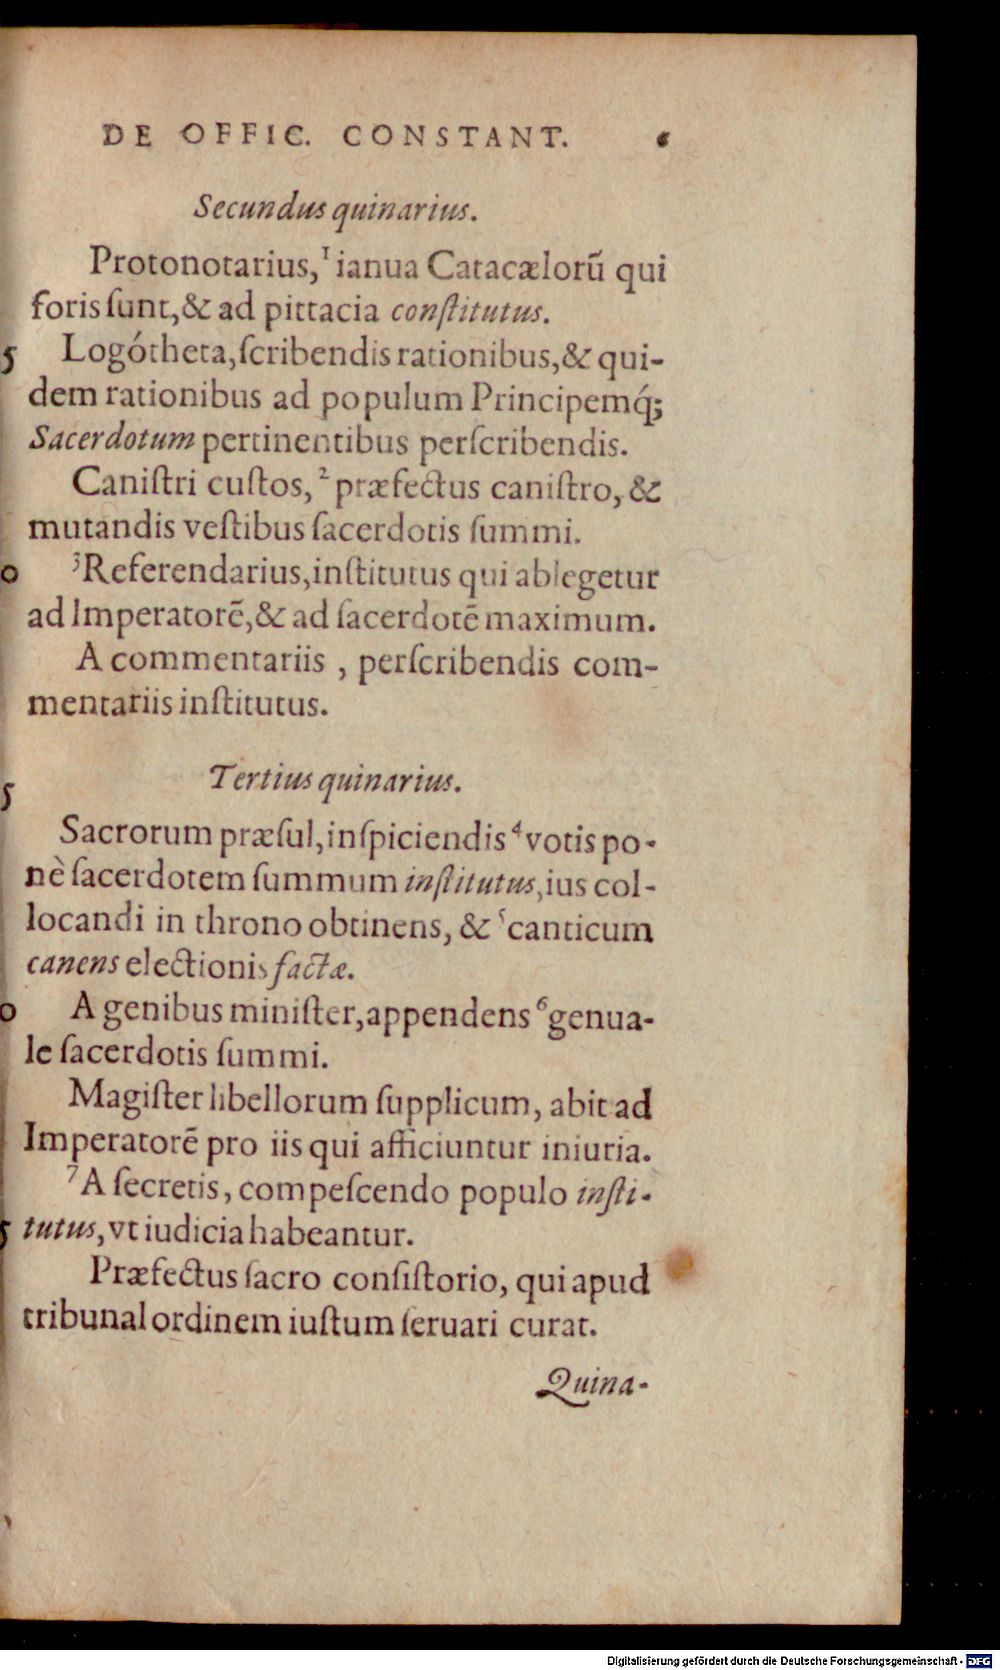 DE OFFIC. CONSTANT. 6
Secundus quinarius.
Protonotarius,¹ ianua Catacælorũ qui
foris ſunt,& ad pittacia conſtitutus.
5 Logótheta,ſcribendis rationibus,& qui-
dem rationibus ad populum Principemq́;
Sacerdotum pertinentibus perſcribendis.
Caniſtri cuſtos, ²præfectus caniſtro, &
mutandis veſtibus ſacerdotis ſummi.
0 ³Referendarius,inſtitutus qui ablegetur
ad Imperatorẽ,& ad ſacerdotẽ maximum.
A commentariis , perſcribendis com-
mentariis inſtitutus.
Tertius quinarius.
5
Sacrorum præſul,inſpiciendis ⁴votis po-
nè ſacerdotem ſummum inſtitutus,ius col-
locandi in throno obtinens, & ⁵canticum
canens electionis factæ.
0 A genibus miniſter,appendens ⁶genua-
le ſacerdotis ſummi.
Magiſter libellorum ſupplicum, abit ad
Imperatorẽ pro iis qui afficiuntur iniuria.
⁷A ſecretis, compeſcendo populo inſti-
5 tutus,vt iudicia habeantur.
Præfectus ſacro conſiſtorio, qui apud
tribunal ordinem iuſtum ſeruari curat.
Quina-
Digitalisierung gefördert durch die Deutsche Forschungsgemeinschaft - DFG